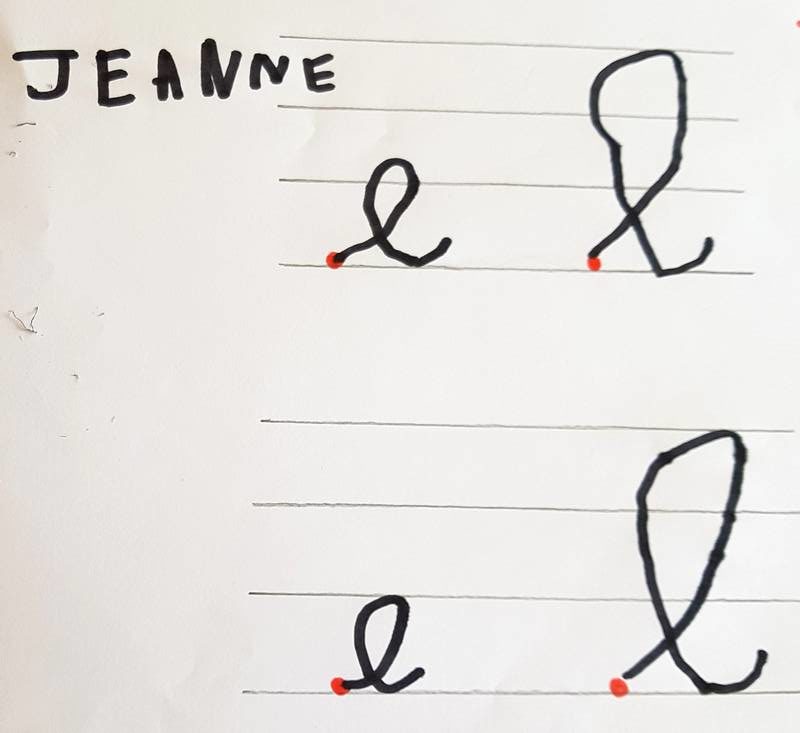 JEANNE
e l
e l